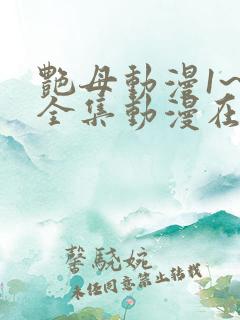 艷母動漫1~
全集動漫在
馨騃婉
未经同意禁止转载